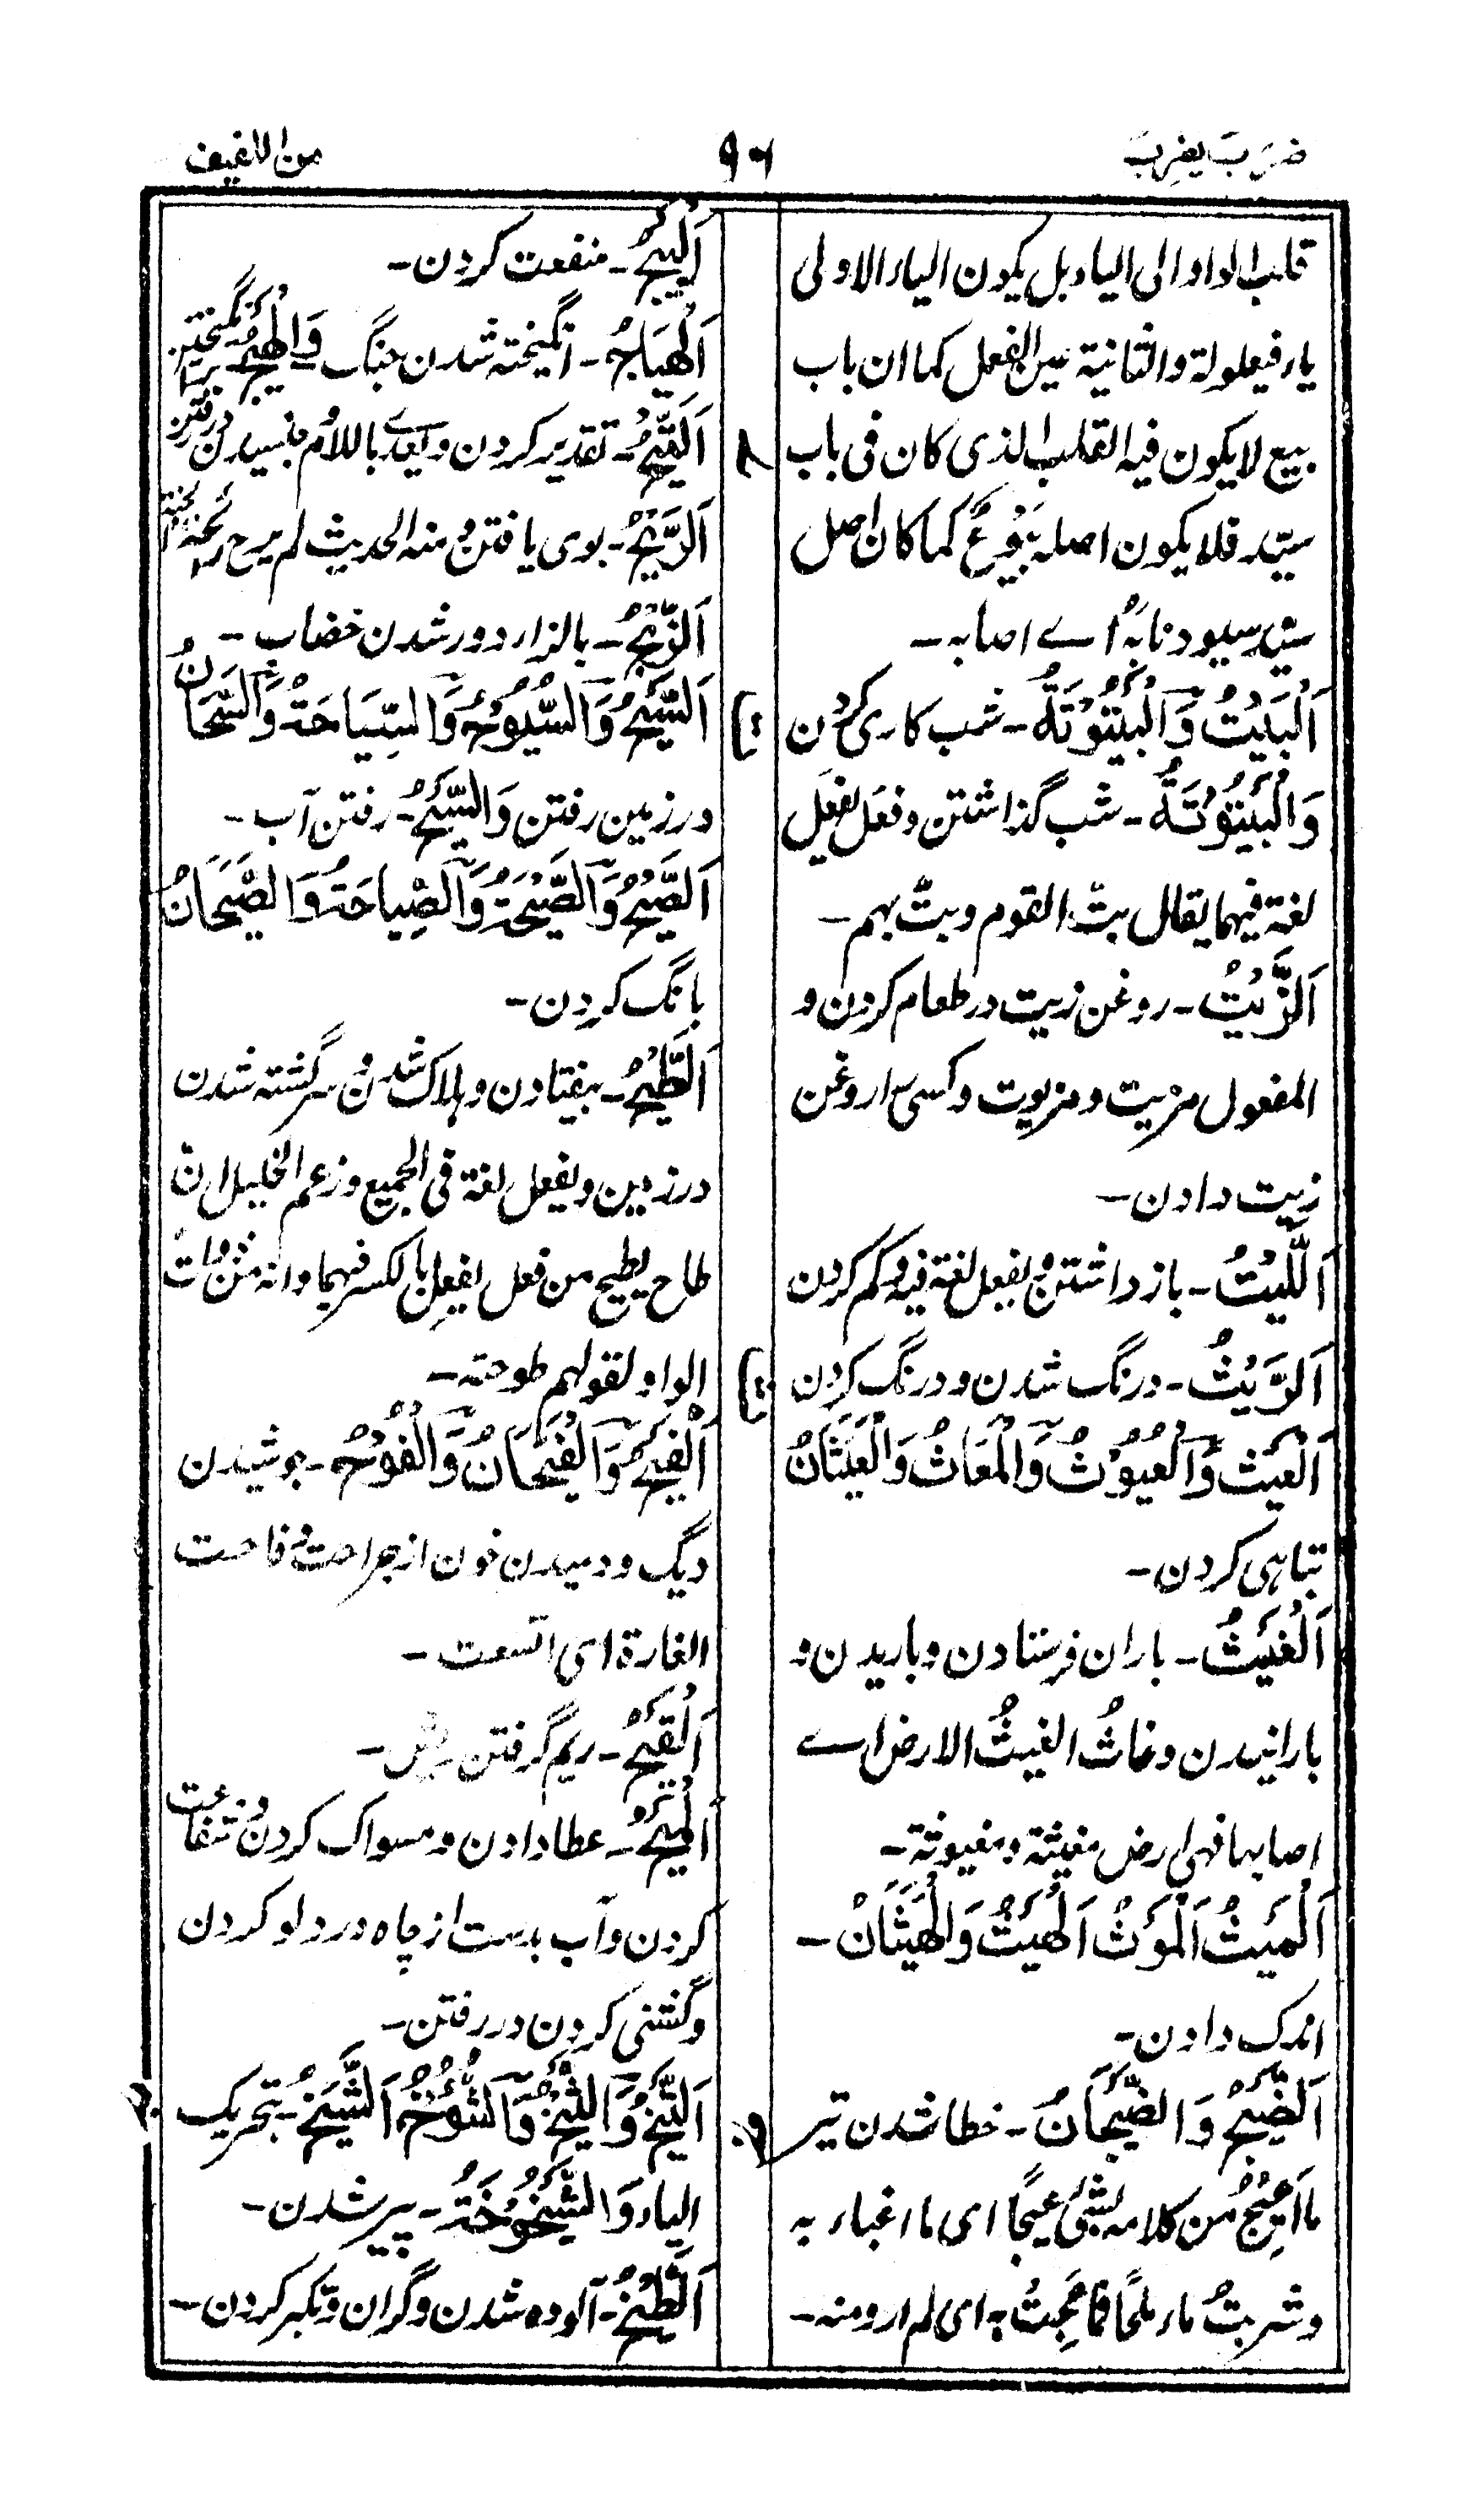 ضَرَبَ یضرِبُ
۹۶
من اللفیف
قلب الواو الی الیاء بل یکون الیاء الاولی
یاء فیعلولة والثانیة عین الفعل کما ان باب
بیع لا یکون فیه القلب الذی کان فی باب
سیّد فلا یکون اصله بَیْوَعٌ کما کان اصل
سیّد سیود نابهٗ اے اصابه ـ
اَلْبَیْتُ وَالْبَیْتُوْتَةُ ـ شب کاری کردن
وَالْبَیْتُوْتَةُ ـ شب گذاشتن وفعَل یفعَل
لغة فیهما یقال بتّ القوم وبتّ بهم ـ
اَلزَّیْتُ ـ روغن زیت در طعام کردن و
المفعول مزیت ومزیوت وکسی را روغن
زیت دادن ـ
اَللَّیْتُ ـ باز داشتن و یفعل لغة فیه وکم کردن
اَلرَّیْثُ ـ درنگ شدن ودرنگ کردن
اَلْعَیْثُ وَالْعُیُوْثُ وَالْمَعَاثُ وَالْعَیَثَانُ
تباهی کردن ـ
اَلْغَیْثُ ـ باران فرستادن وباریدن و
بارانیدن وغاثُ الغیثُ الارض اے
اصابها فهی ارض مغیثة ومغیوثة ـ
اَلْمَیْثُ اَلْمَوْثُ اَلْهَیْثُ وَالْهَیَثَانُ ـ
اندک دادن ـ
اَلضَّیْجُ وَالضَّیَجَانُ ـ خطا شدن تیر
ما اَعِیْجُ من کلامه بشئ عیجًا ای ما اعباء به
وشربتُ ماء ملحًا فما عِجتُ به ای لم ارو منه ـ
اَلْبَیْحُ ـ منفعت کردن ـ
اَلْهِیَاجُ ـ انگیخته شدن جنگ وَالْهَیْجُ برانگیختن
اَلتَّیْحُ ـ تقدیر کردن ویعدے باللام
اَلرَّیْحُ ـ بوی یافتن و منه الحدیث لم یرح رائحة الجنة
اَلزَّیْحُ ـ بالزاء دور شدن خضاب ـ
اَلسَّیْحُ وَالسُّیُوْحُ وَالسِّیَاحَةُ وَالسَّیَحَانُ
در زمین رفتن وَالسَّیْحُ ـ رفتن آب ـ
اَلصَّیْحُ وَالصَّیْحَةُ وَالصِّیَاحَةُ وَالصَّیَحَانُ
بانگ کردن ـ
اَلطَّیْحُ ـ بیفتادن وہلاک شدن و سرگشته شدن
در زمین ویفعل لغة فی الجمیع وزعم الخلیل ان
طاح یطیح من فعل یفعِل بالکسر فیهما وانه من بنات
الواو لقولهم طوحته ـ
اَلْفَیْحُ وَالْفَیَحَانُ وَالْفُوْحُ ـ جوشیدن
دیگ ودمیدن خون از جراحت وفاحت
الغارة ای اتسعت ـ
اَلْقَیْحُ ـ ریم گرفتن ریش ـ
اَلْمَیْحُ ـ عطا دادن ومسواک کردن و شفاعت
کردن وآب بدست از چاه در دلو کردن
وگشنی کردن در رفتن ـ
الیاء وَالشَّیْخُوْخَةُ ـ پیر شدن ـ
اَلطَّیْخُ ـ آلوده شدن وگران وتکبر کردن ـ